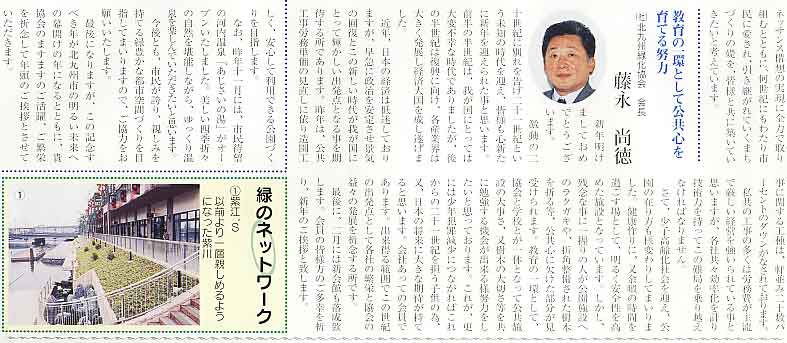 ネッサンス構想の実現に全力で取り
組むとともに、何世紀にもわたり市
民に愛され、引き継がれていくまち
づくりの礎を、皆様と共に築いてい
きたいと考えています。
しく、安心して利用できる公園づく
りを目指します。
なお、昨年十一月には、市民待望
の河内温泉『あじさいの湯』がオー
プンいたしました。美しい四季折々
の自然を堪能しながら、ゆっくり温
泉を楽しんでいただきたいと思います。
今後とも、市民が誇り、親しみを
持てる緑豊かな都市空間づくりを目
指してまいりますので、ご協力をお
願いいたします。
最後になりますが、この記念す
べき年が北九州市の明るい未来へ
の幕開けの年になるとともに、貴
協会のますますのご活躍、ご繁栄
を祈念して年頭のご挨拶とさせて
いただきます。
教育の一環として公共心を
育てる努力
㈳北九州緑化協会 会長
藤永 尚徳
新年明け
ましておめ
でとうござ
います。
激動の二
十世紀に別れを告げ二十一世紀とい
う未知の時代を迎え、皆様も心新た
に新年を迎えられた事と思います。
前世の半世紀は、我が国にとっては
大変不幸な時代でありましたが、後
の半世紀は復興に向け、各産業界は
大きく発展し経済大国を成し遂げま
した。
近年、日本の経済は低迷しており
ますが、早急に政治を安定させ景気
の回復とこの新しい時代が我が国に
とって輝かしい出発点となる事を期
待する所であります。昨年は、公共
工事労務単価の見直しに依り造園工
事に関する工種は、軒並み二十数パ
ーセントのダウンがなされております。
私共の工事の多くは労務費が主流
で厳しい経営を強いられている事と
思いますが、各社共々効率化を計り
技術力を持ってこの難局を乗り越え
なければなりません。
さて、少子高齢化社会を迎え、公
園の在り方も様変わりしてまいりま
した。健康作りに、又余暇の時間を
過ごす場として、明るく安全性を高
めた施設となっています。しかし、
残念な事に一握りの人が公園施設へ
のラクガキや、折角整備された樹木
を折る等、公共心に欠けた部分が見
受けられます。教育の一環として、
協会と学校とが一体となって公共施
設の大事さ、又樹木の大切さ等を共
に勉強する機会が出来る様努力をし
たいと思っております。これが、更
には少年犯罪減少につながればこれ
からの二十一世紀を担う子供の為、
又、日本の将来に大きな期待が持て
ると思います。会社あっての会員で
あります。出来得る範囲でこの世紀
の出発点として各社の繁栄と協会の
益々の発展を祈念する所です。
最後に、二月には新会館も落成致
します。会員の皆様方のご多幸を祈
り、新年のご挨拶と致します。
緑のネットワーク
①紫江'S
以前より一層親しめるよう
になった紫川
①